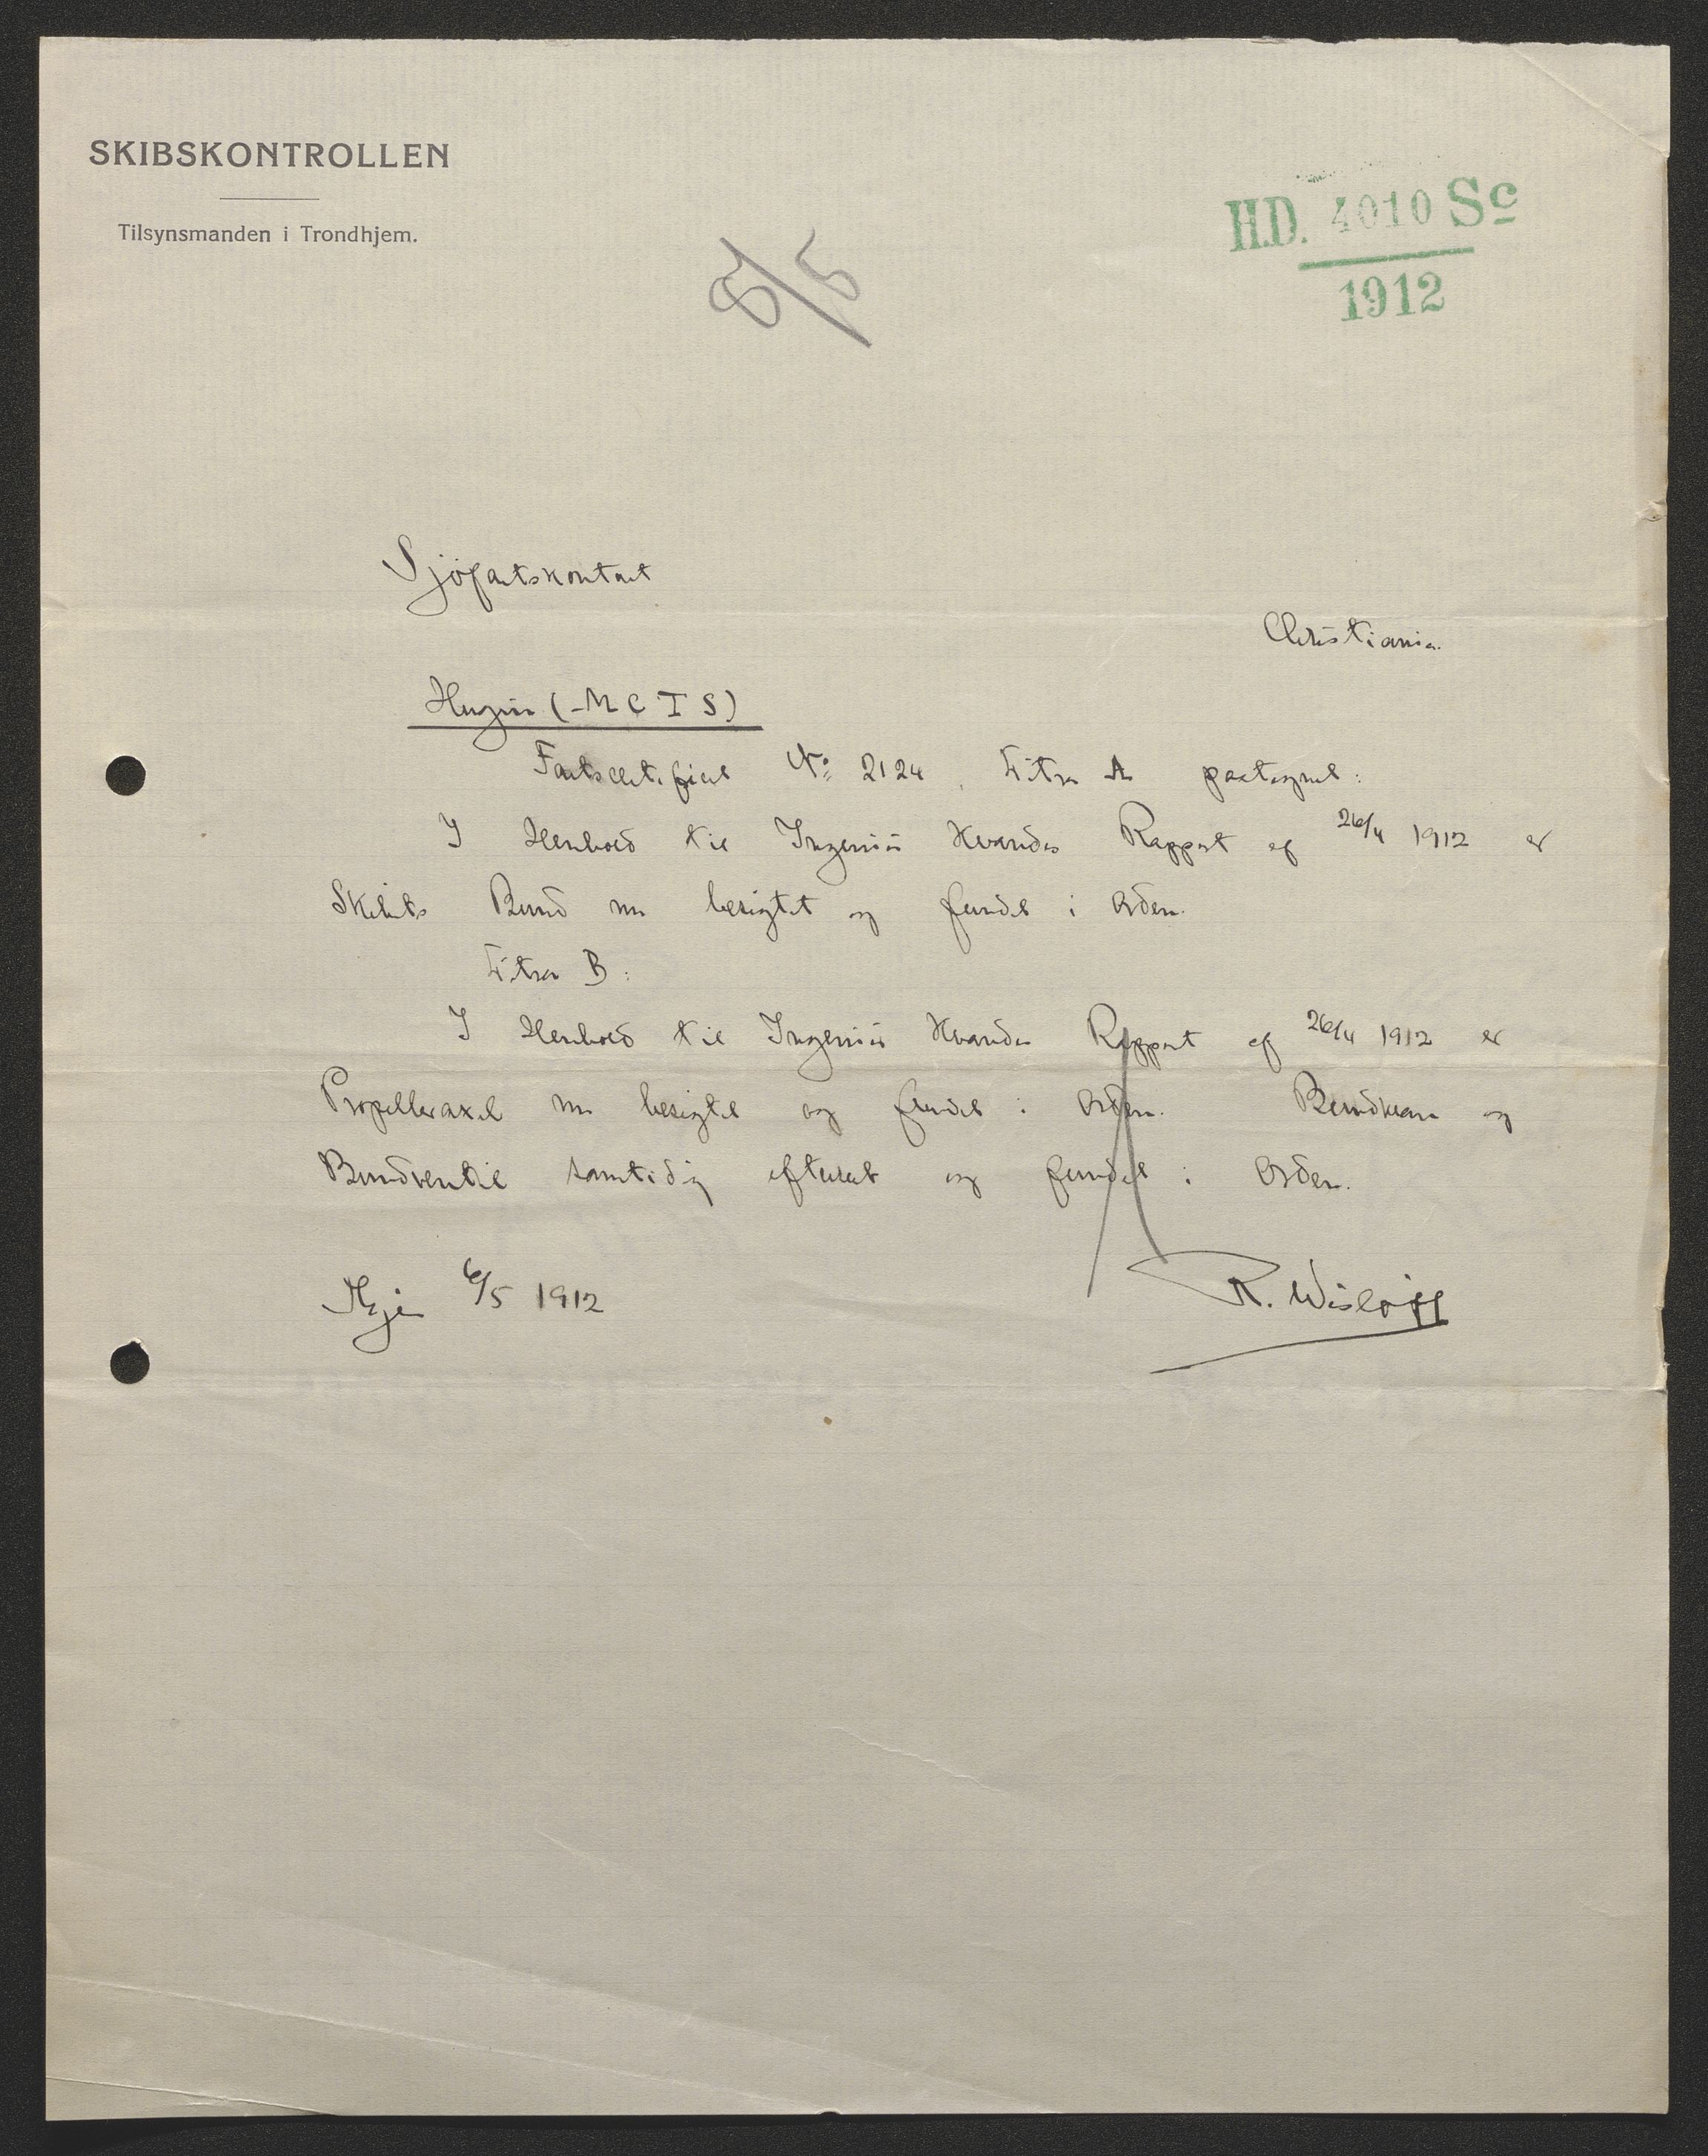 SKIBSKONTROLLEN
Tilsynsmanden i Trondhjem.
H.D. 4010 Sc
1912
8/5
Sjöfartskontoret
Christiania.
Hugin (-M C T S)
Fartscertifikat No 2124, Litra A paategnet:
I Henhold til Ingeniör Hvards Rapport af 26/4 1912 er
Skibets Bund nu besigtet og fundet i Orden.
Litra B:
I Henhold til Ingeniör Hvards Rapport af 26/4 1912 er
Propelleraxel nu besigtet og fundet i Orden. Bundkran og
Bundventil samtidig efterset og fundet i Orden.
6/5 1912
R. Wislöff